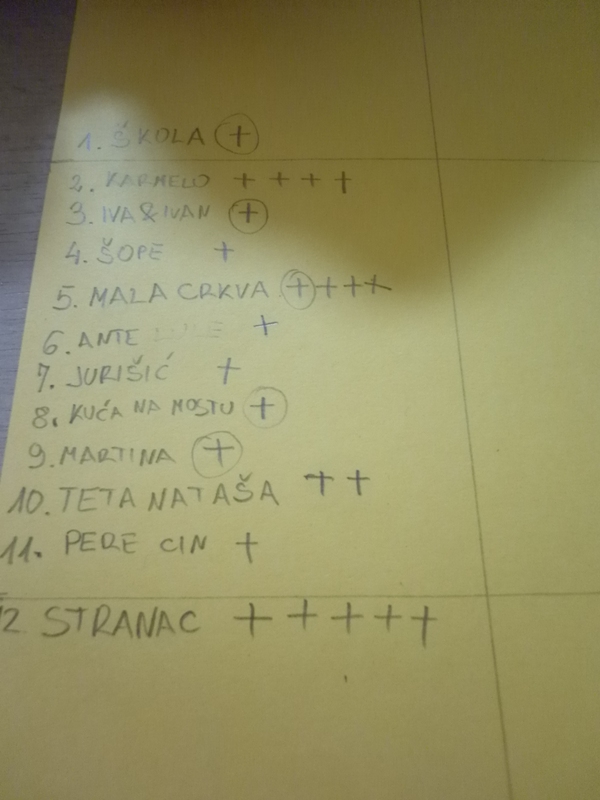 1. ŠKOLA +
2. KARMELO + + + +
3. IVA & IVAN +
4. ŠOPE +
5. MALA CRKVA + + + +
6. ANTE +
7. JURIŠIĆ +
8. KUĆA NA MOSTU +
9. MARTINA +
10. TETA NATAŠA + +
11. PERE CIN +
12 STRANAC + + + + +